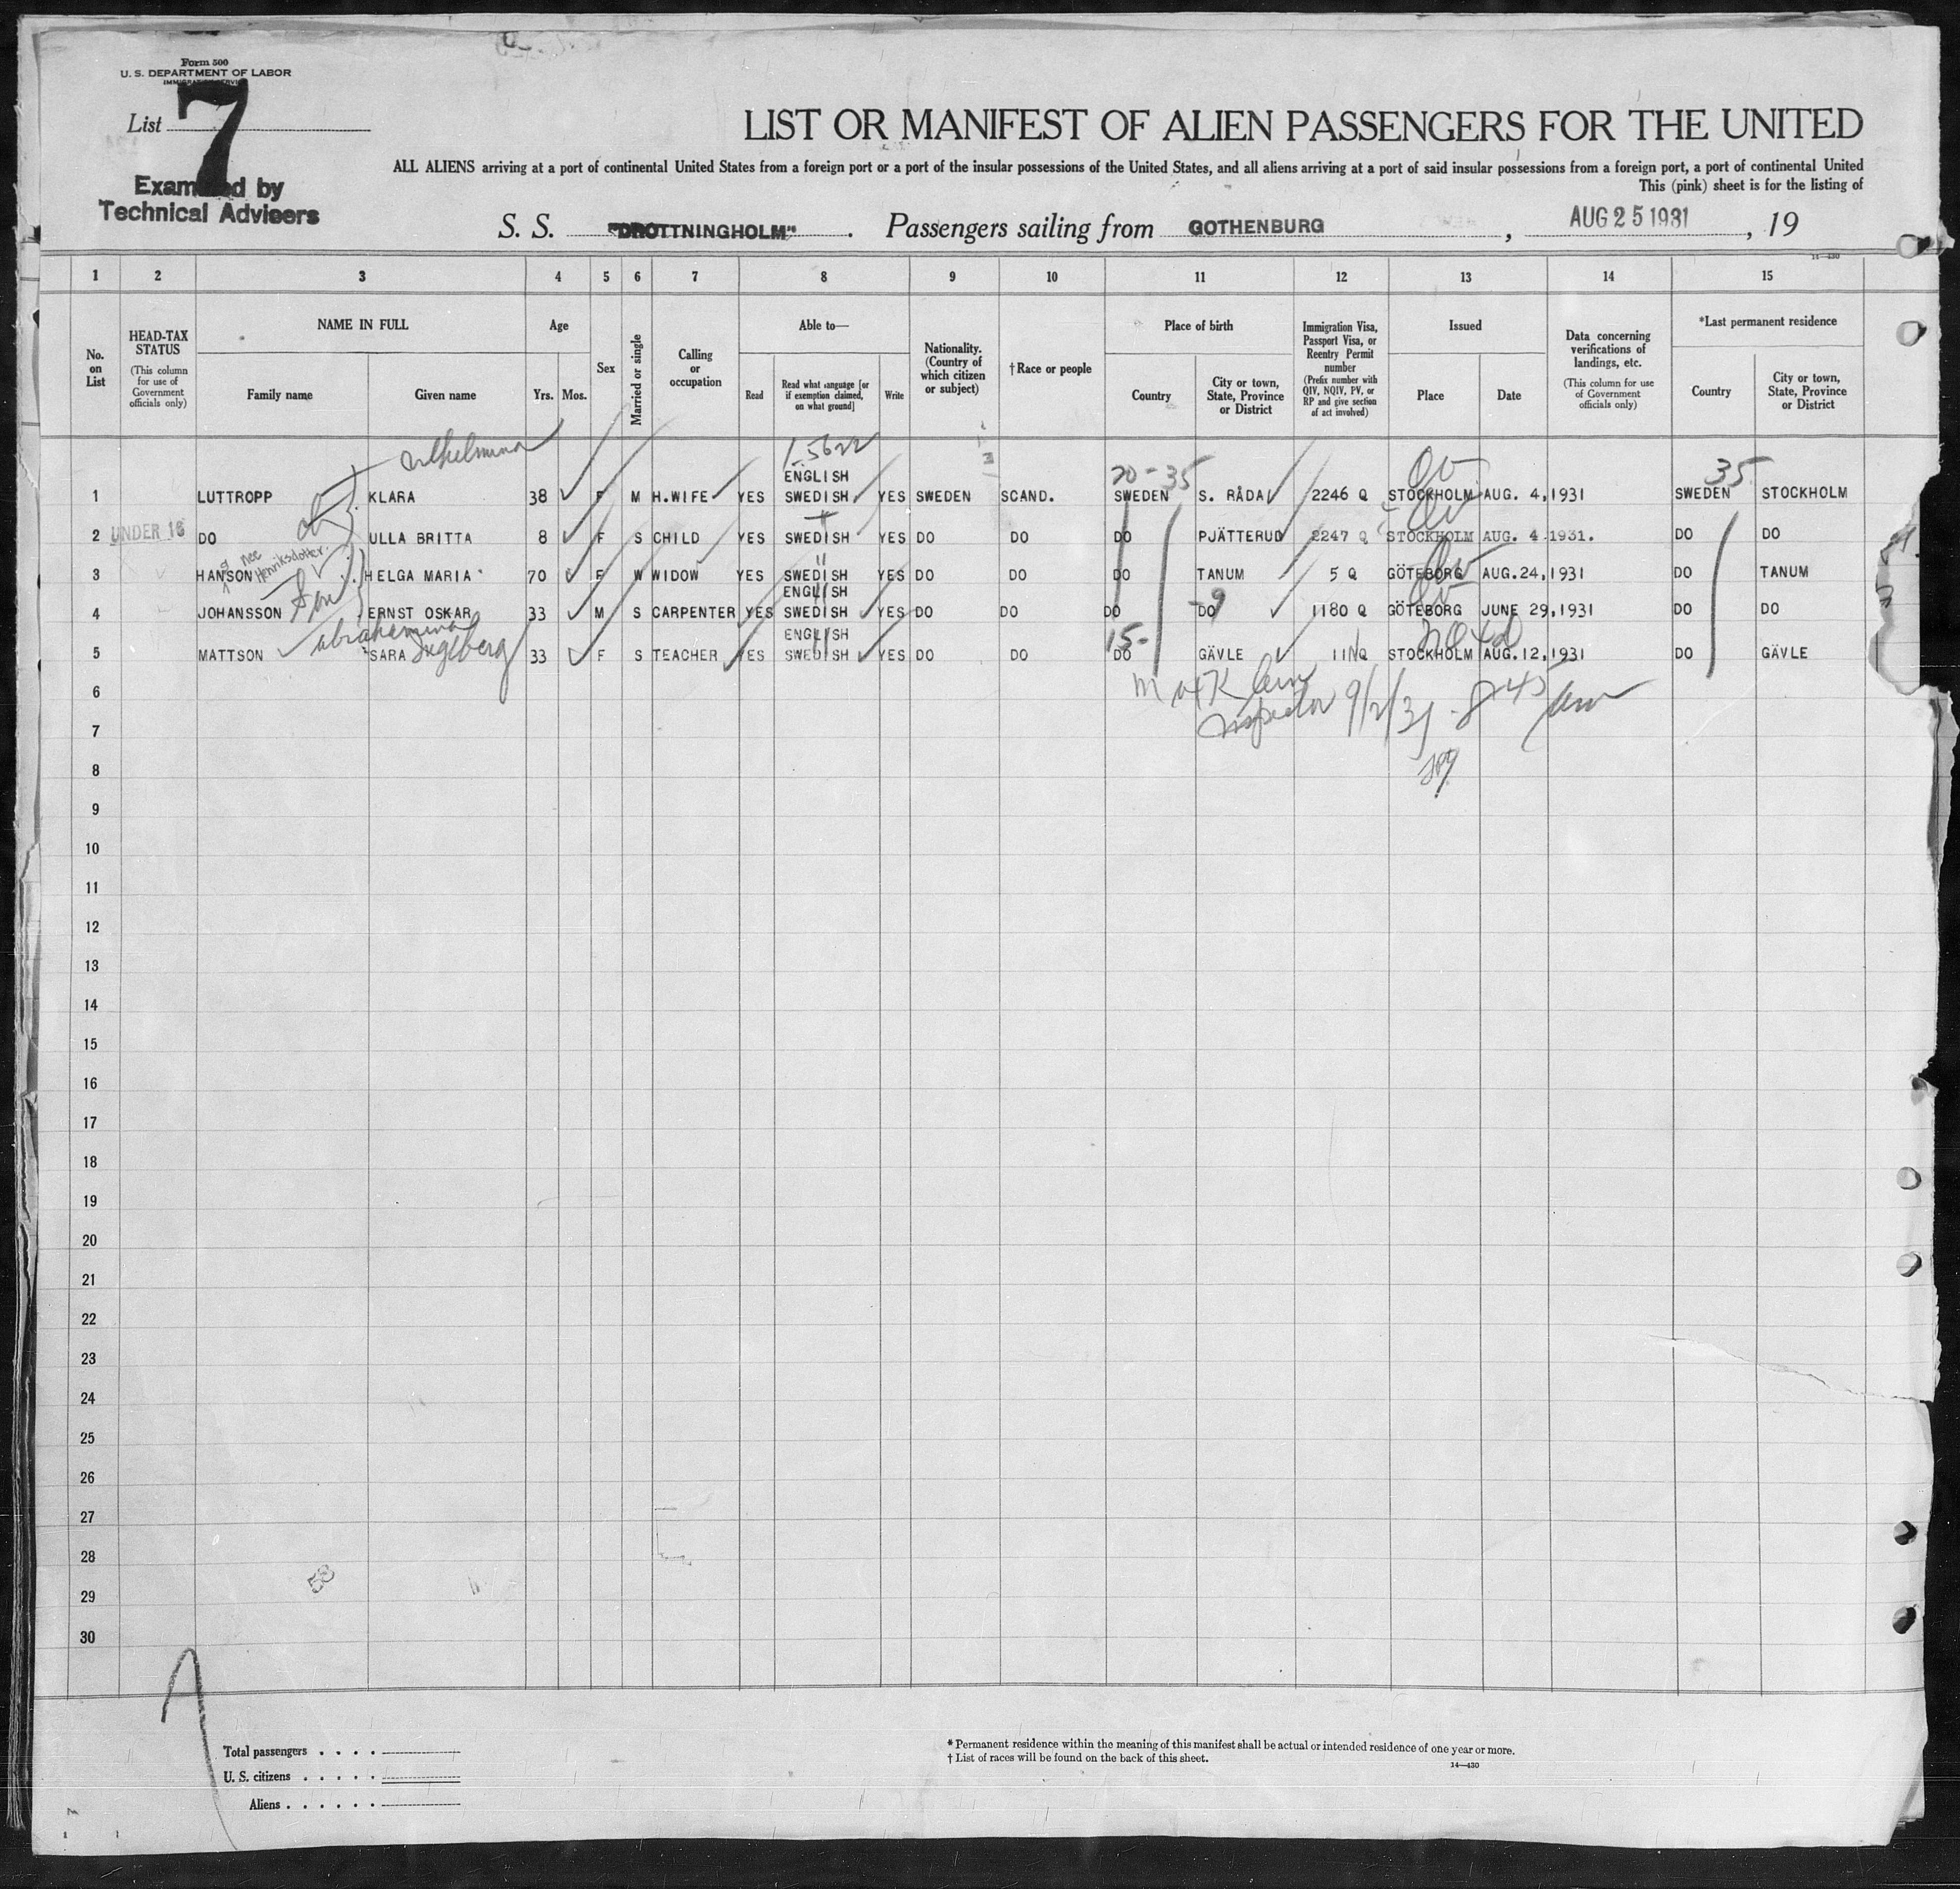 Form 500
U. S. DEPARTMENT OF LABOR
IMMIGRATION SERVICE
List 7
Examined by
Technical Advisers
LIST OR MANIFEST OF ALIEN PASSENGERS FOR THE UNITED
ALL ALIENS arriving at a port of continental United States from a foreign port or a port of the insular possessions of the United States, and all aliens arriving at a port of said insular possessions from a foreign port, a port of continental United
This (pink) sheet is for the listing of
S. S. "DROTTNINGHOLM" . Passengers sailing from GOTHENBURG , AUG 25 1931 , 19
14—430
1 2 3 4 5 6 7 8 9 10 11 12 13 14 15
No. on List
HEAD-TAX STATUS (This column for use of Government officials only)
NAME IN FULL
Family name Given name
Age
Yrs. Mos.
Sex
Married or single
Calling or occupation
Able to—
Read Read what language [or if exemption claimed, on what ground] Write
Nationality. (Country of which citizen or subject)
†Race or people
Place of birth
Country City or town, State, Province or District
Immigration Visa, Passport Visa, or Reentry Permit number (Prefix number with QIV, NQIV, PV, or RP and give section of act involved)
Issued
Place Date
Data concerning verifications of landings, etc. (This column for use of Government officials only)
*Last permanent residence
Country City or town, State, Province or District
20-35 35
ENGLISH
1 LUTTROPP KLARA 38 F M H.WIFE YES SWEDISH YES SWEDEN SCAND. SWEDEN S. RÅDA 2246 Q STOCKHOLM AUG. 4,1931 SWEDEN STOCKHOLM
2 UNDER 16 DO ULLA BRITTA 8 F S CHILD YES SWEDISH YES DO DO DO PJÄTTERUD 2247 Q STOCKHOLM AUG. 4 1931. DO DO
nee Henriksdotter.
3 HANSON HELGA MARIA 70 F W WIDOW YES SWEDISH YES DO DO DO TANUM 5 Q GÖTEBORG AUG.24,1931 DO TANUM
ENGLISH
4 JOHANSSON ERNST OSKAR 33 M S CARPENTER YES SWEDISH YES DO DO DO DO 1180 Q GÖTEBORG JUNE 29,1931 DO DO
ENGLISH 15-
5 MATTSON SARA 33 F S TEACHER YES SWEDISH YES DO DO DO GÄVLE 11 Q STOCKHOLM AUG.12,1931 DO GÄVLE
6
Inspector 9/2/31
7
8
9
10
11
12
13
14
15
16
17
18
19
20
21
22
23
24
25
26
27
28
58
29
30
Total passengers . . . .
U. S. citizens . . . . .
Aliens . . . . . .
* Permanent residence within the meaning of this manifest shall be actual or intended residence of one year or more.
† List of races will be found on the back of this sheet.
14—430